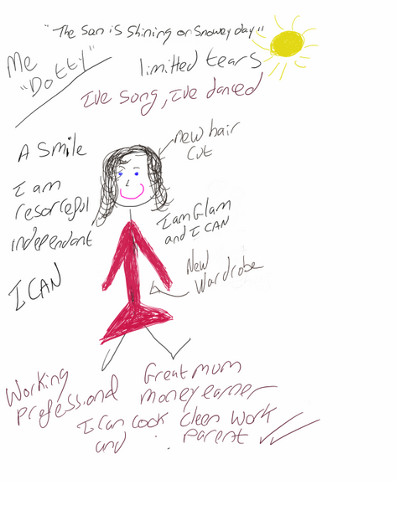 "The Sun is Shining on Snowey day"
Me
"Dotty"
limitted tears
Ive song, Ive danced
new hair
cut
A Smile
I am
resorceful
independant
I CAN
I am Glam
and I CAN
New
Wardrobe
Working
professional
Great mum
money earner
I can cook cleen work
and parent